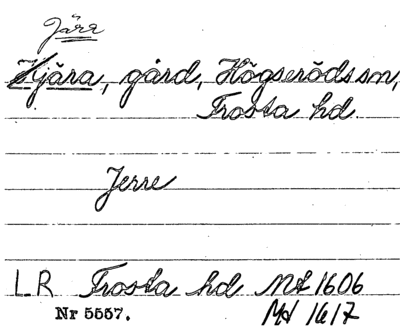 Järr
Hjära, gård, Högseröds sn,
Frosta hd.
Jerre
LR Frosta hd Mt 1606
Nr 5557. Mt 1617